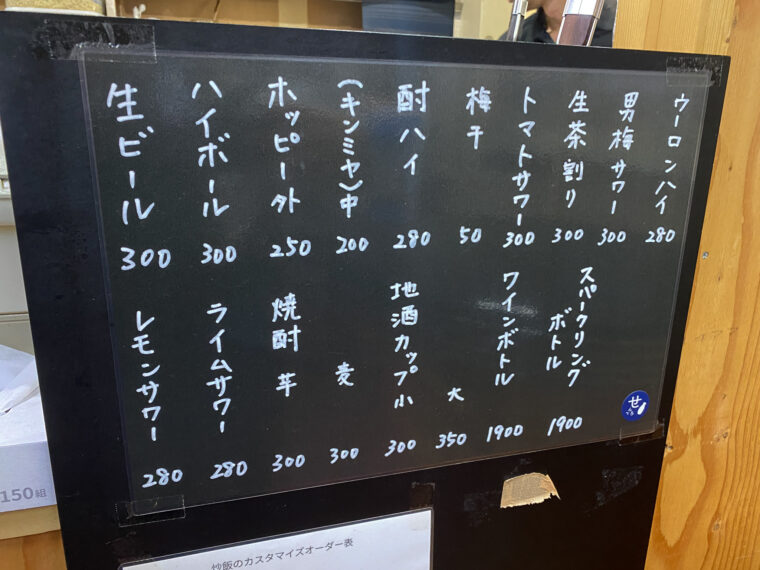 生ビール 300
ハイボール 300
ホッピー外 250
(キンミヤ)中 200
酎ハイ 280
梅干 50
トマトサワー 300
生茶割り 300
男梅サワー 300
ウーロンハイ 280
レモンサワー 280
ライムサワー 280
焼酎 芋 300
麦 300
地酒カップ小 300
大 350
ワインボトル 1900
スパークリング
ボトル 1900
せ
150組
炒飯のカスタマイズオーダー表